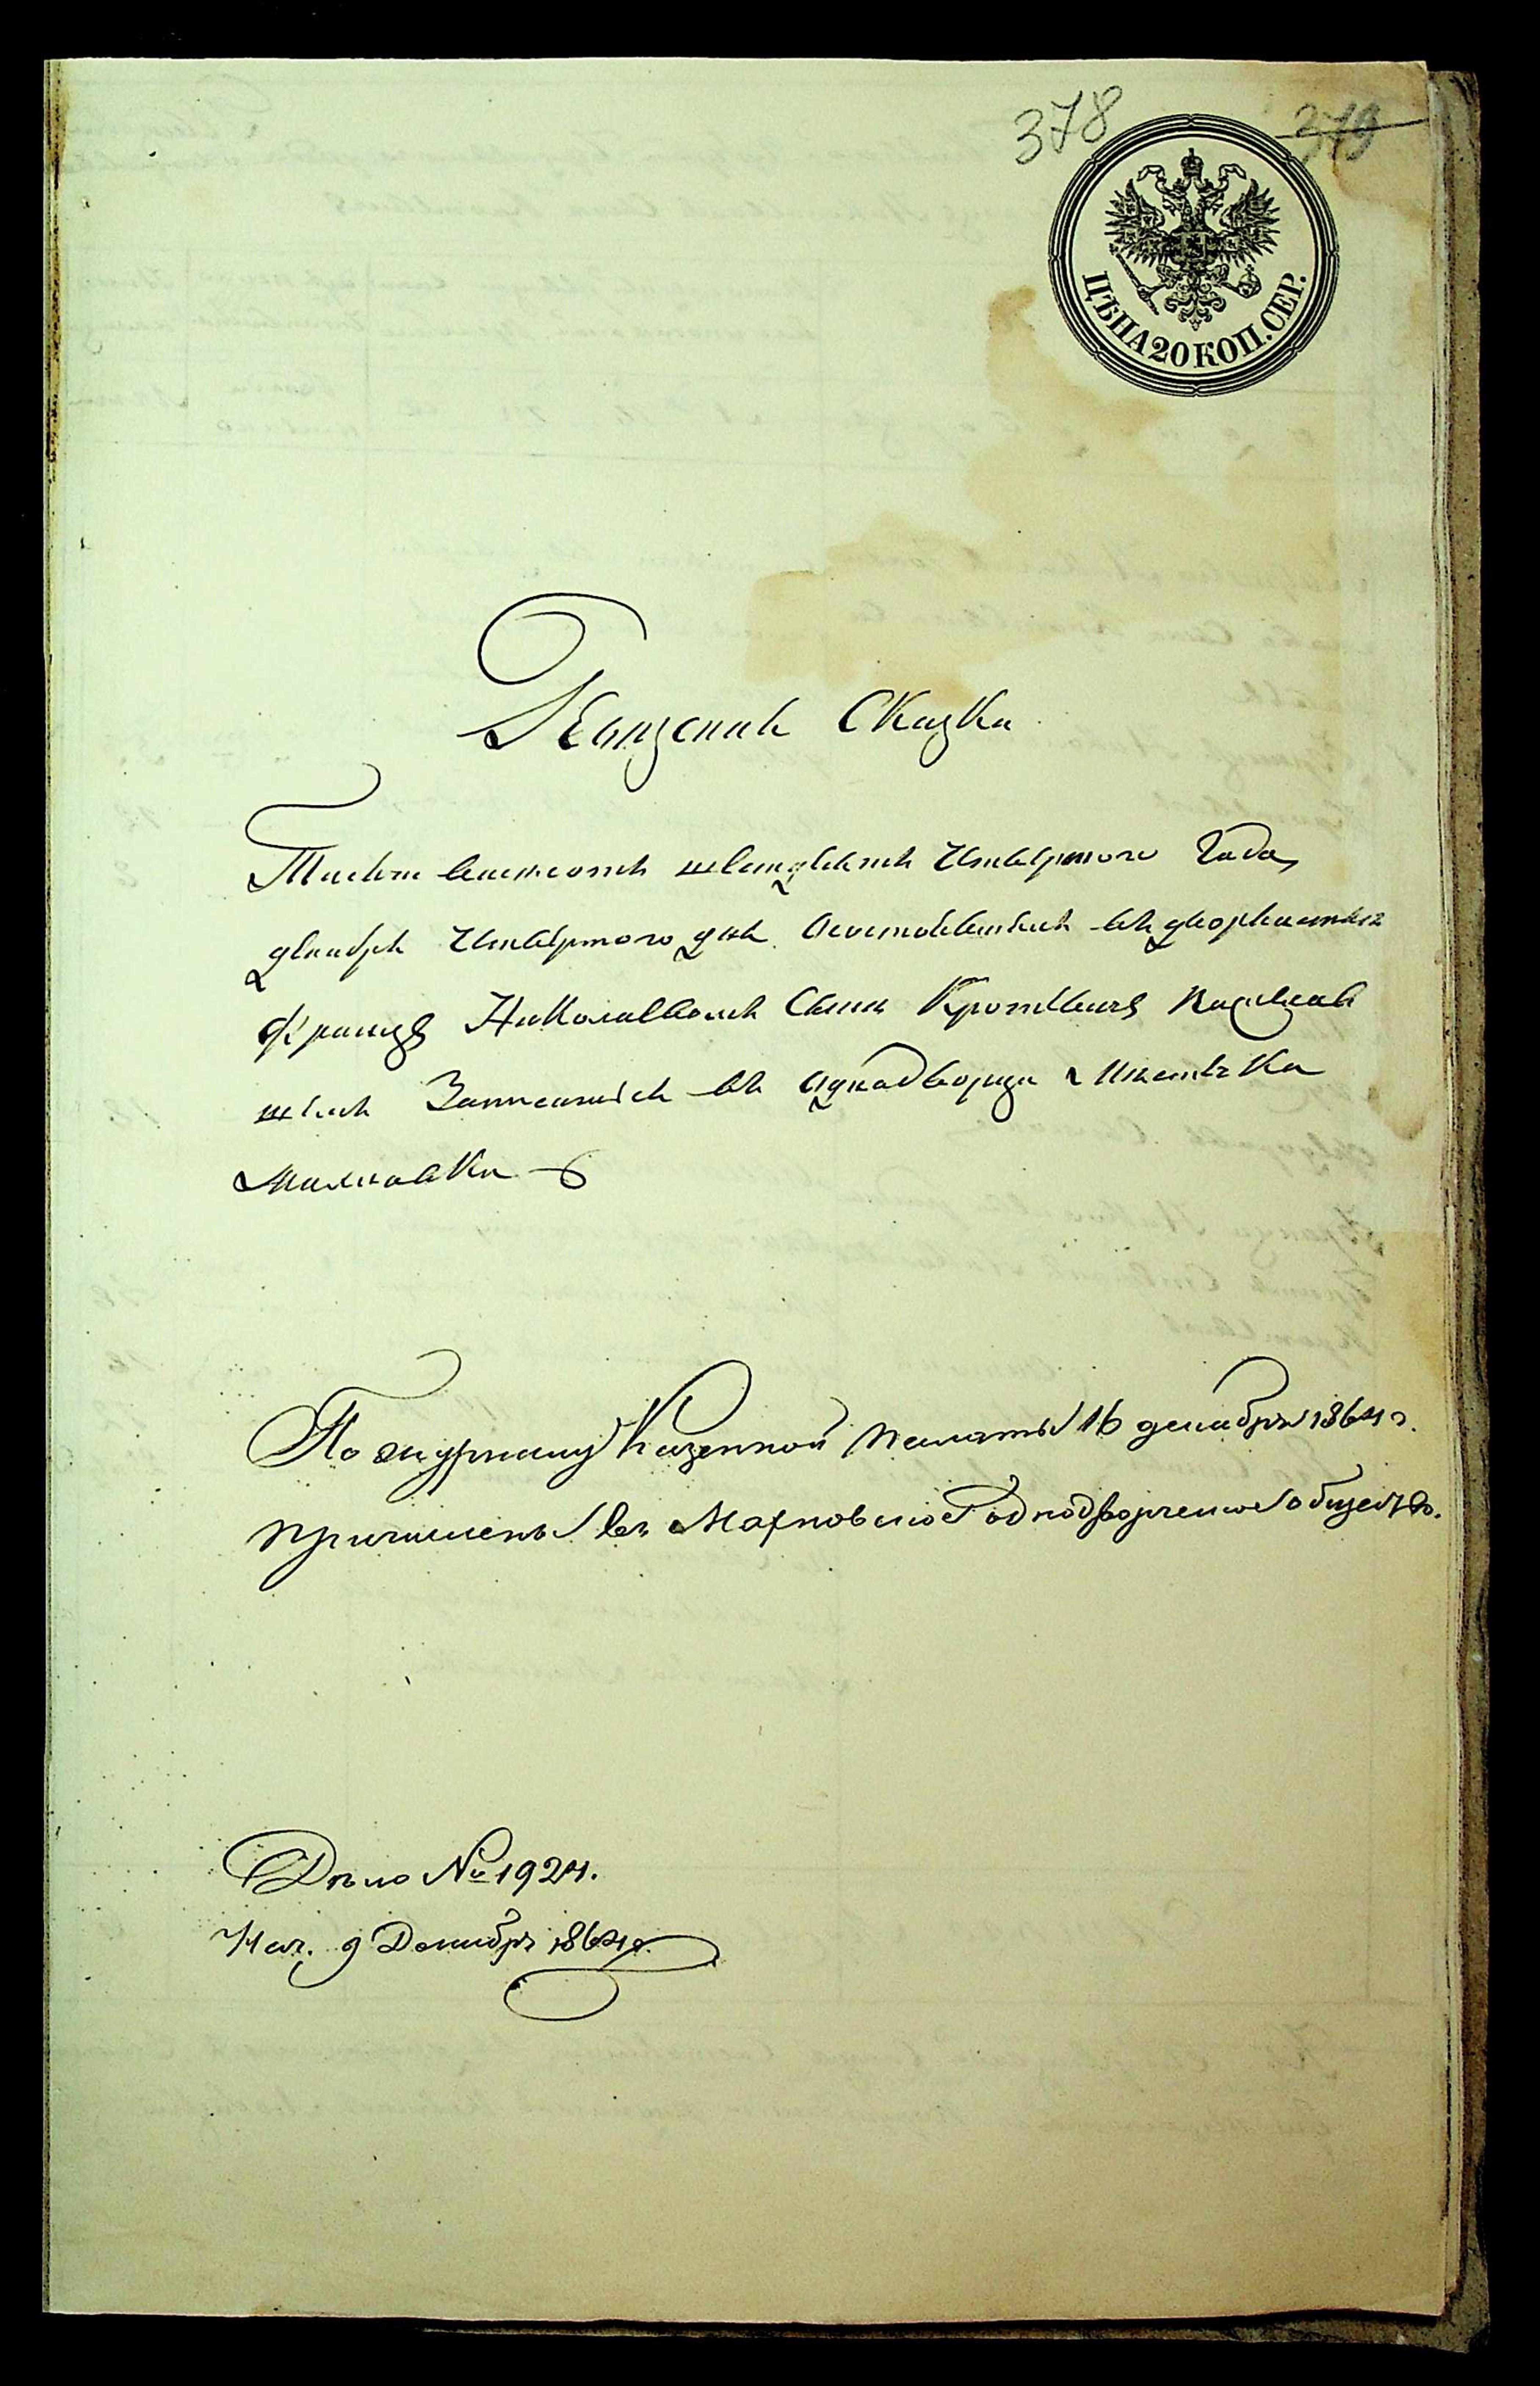 378
379
ЦѢНА 20 КОП. СЕР.
Ревизская Сказка
Тысяча восемсотъ шесдесятъ Четвертого Года,
декабря Четвертого дня. Осостоявшихъ въ дворянствѣ
Францъ Николаевъ Сынъ Кротъ
Записаться въ однодворцы Мѣстечка
Махновки
По журналу Казенной палаты 16 декабря 1864 г.
причислены въ Махновское однодворческое общество.
Дѣло № 1924.
Нач. 9 Декабря 1864 г.